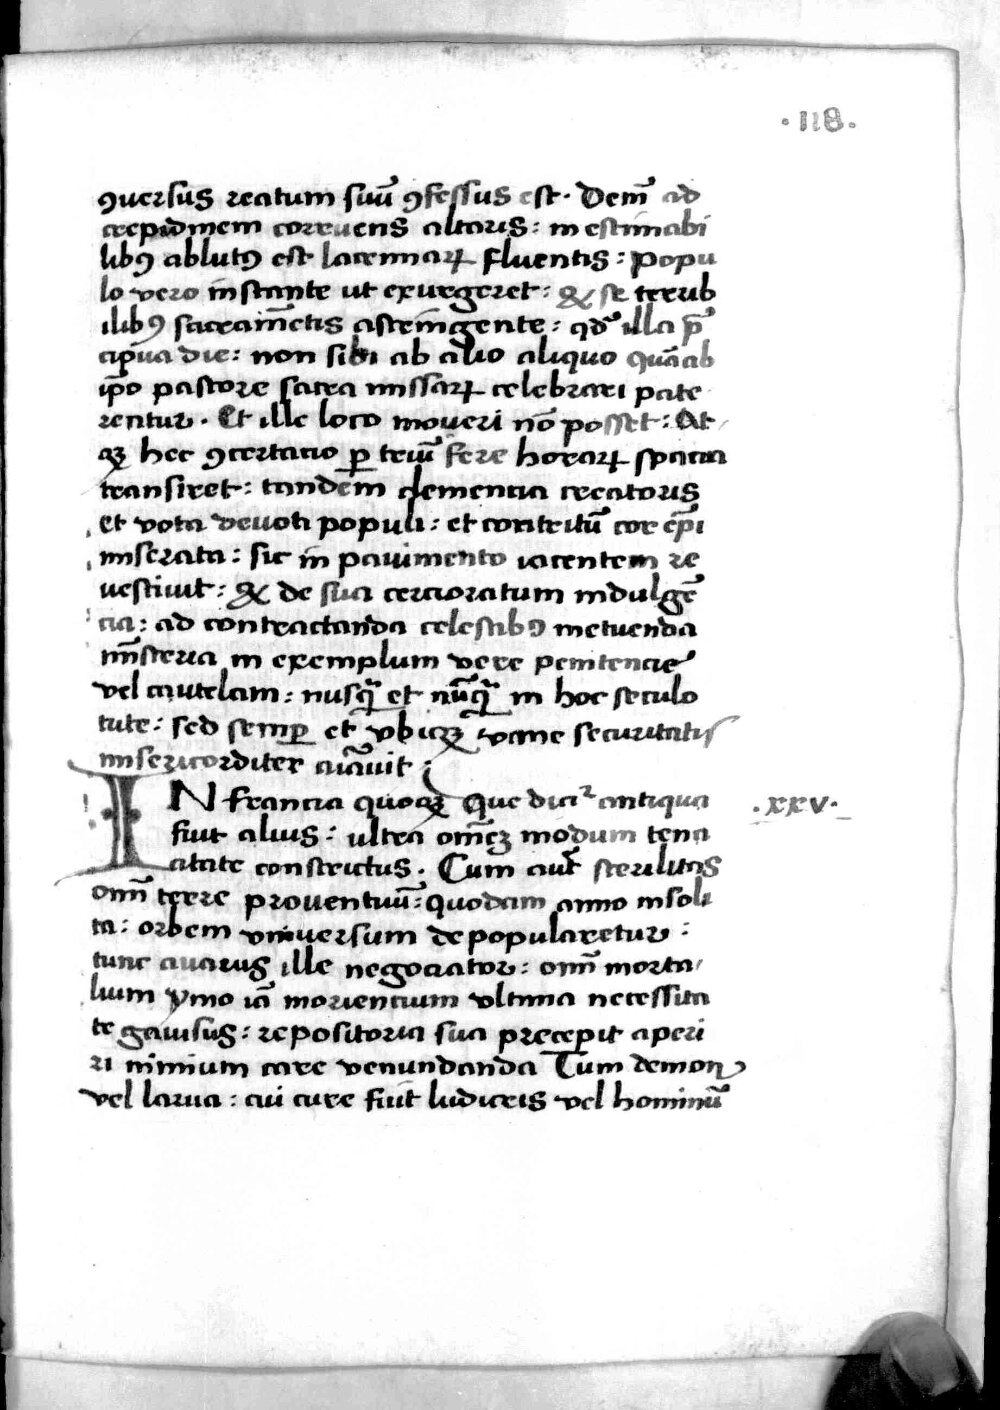 ·118·
ꝯuersus reatum suū ꝯfessus est· Dem̄ ad
crepidinem correuens altaris: inestimabi
libꝰ ablutꝰ est lacrimaꝝ fluentis: popu
lo vero instante ut exurgeret: & se terrib
ilibꝰ sacram̄etis astringente: qd' illa p̄
cipua die: non sibi ab alio aliquo quā ab
ip̄o pastore sacra missaꝝ celebrari pate
rentur· Et ille loco moueri nō posset: At
qꝫ hec ꝯcertatio ꝑ triū fere horaꝝ spacia
transiret: tandem clementia creatoris
et vota deuoti populi: et contritū cor ep̄i
miserata: sic in pauimento iacentem re
uestiuit: & de sua cercioratum indulgē
cia: ad contractanda celestibꝰ metuenda
mīsteria in exemplum vere penitencie
vel cautelam: nusqꝗ̄ et nūqꝗ̄ in hoc seculo
tute: sed semꝑ et vbiqꝫ vane securitatis
misericorditer aīauit:
IN francia quoqꝫ que dicit᷑ antiqua ·xxv·
fuit alius: ultra om̄eꝫ modum tena
citate constrictus· Cum aut̄ sterilitas
om̄i terre prouentuū: quodam anno insoli
ta: orbem vniuersum depopularetur:
tunc auarus ille negociator: om̄i morta
lium ymo iā moriencium vltima necessita
te gauisus: repositoria sua precepit aperi
ri nimium care venundanda Tum demon
vel larua: cui cure fuit ludicris vel hominū